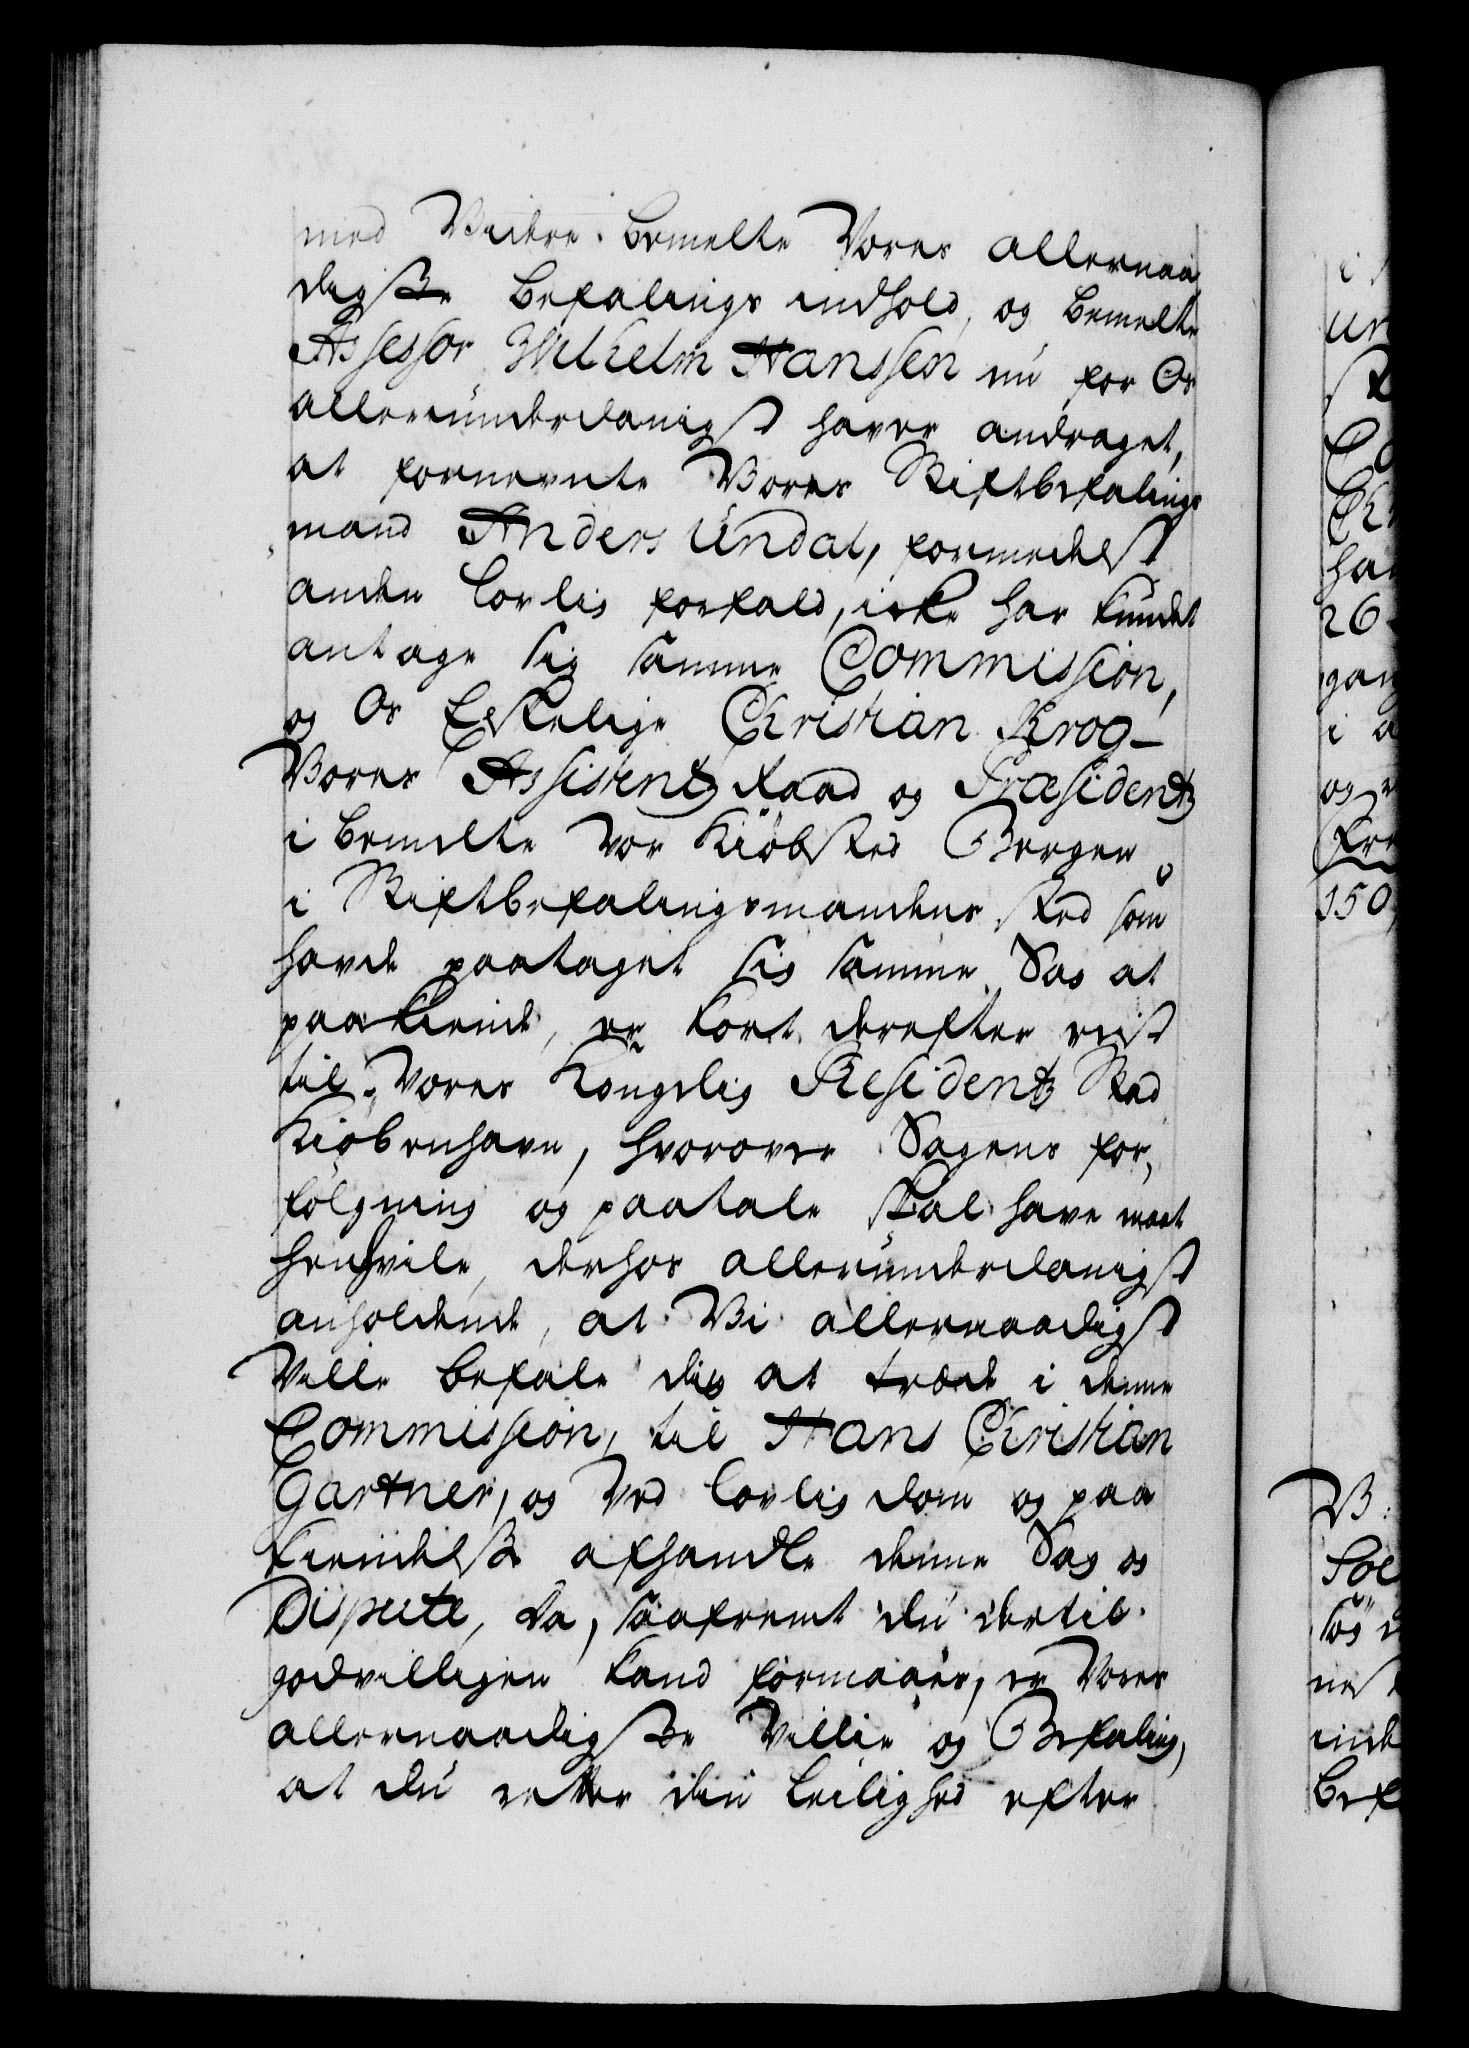 med Videre bemelte Vores allernaa
digste Befalings indhold, og bemelte
Assessor Wilhelm Hanssen nu for Os
allerunderdanigst haver andraget,
at fornevnte Vores Stiftbefalings
mand Anders Undal, formedelst
anden lovlig forfald, icke har kundet
antage sig samme Commission,
og Os Elskelige Christian Krog
Vores Assistentz Raad og Præsidentz
i bemelte vor Kiøbsted Bergen
i Stiftbefalingsmandens sted som
havde paataget sig samme Sag at
paakiende, er kort derefter reist
til Vores Kongelig Residentz Stad
Kiøbenhavn, hvorover Sagens for,
følgning og paatale skal have maat
henhvile, derhos allerunderdanigst
anholdende, at Vi allernaadigst
Ville befale dig at træde i denne
Commission, til Hans Christian
Gartner, og Ved lovlig dom og paa
kiendelse afhandle denne Sag og
Dispute, Da, saafremt du dertil
godvilligen kand formaaes, er Vores
allernaadigste Villie og Befaling,
at du retter din leilighed efter